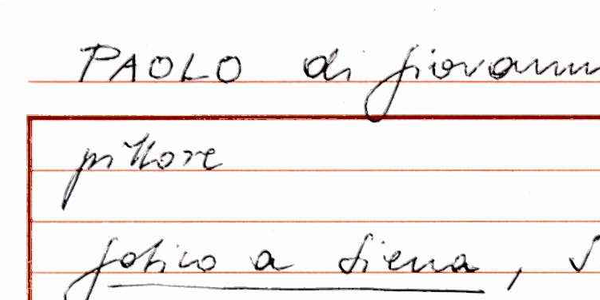 PAOLO di giovann
pittore
gotico a Siena, S